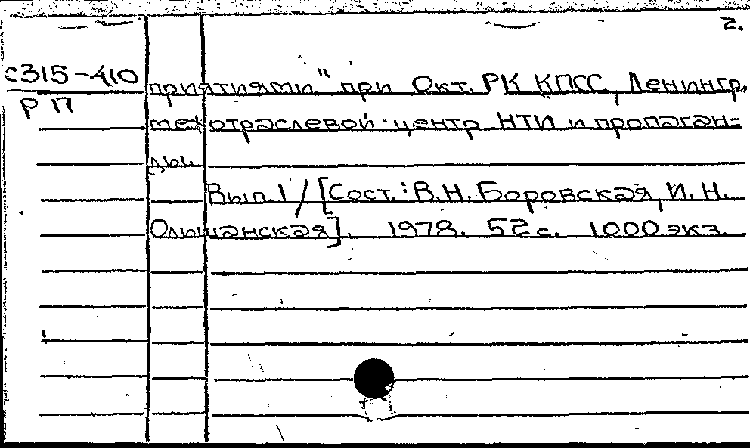 2.
с315-410
РП
приятиями" при Окт. РК КПСС, Ленингр.
межотраслевой центр НТИ и пропаган-
ды.
Вып.1 / [Сост.: В.Н. Боровская, И.Н.
Ольшанская]. 1978. 52 с. 1000 экз.